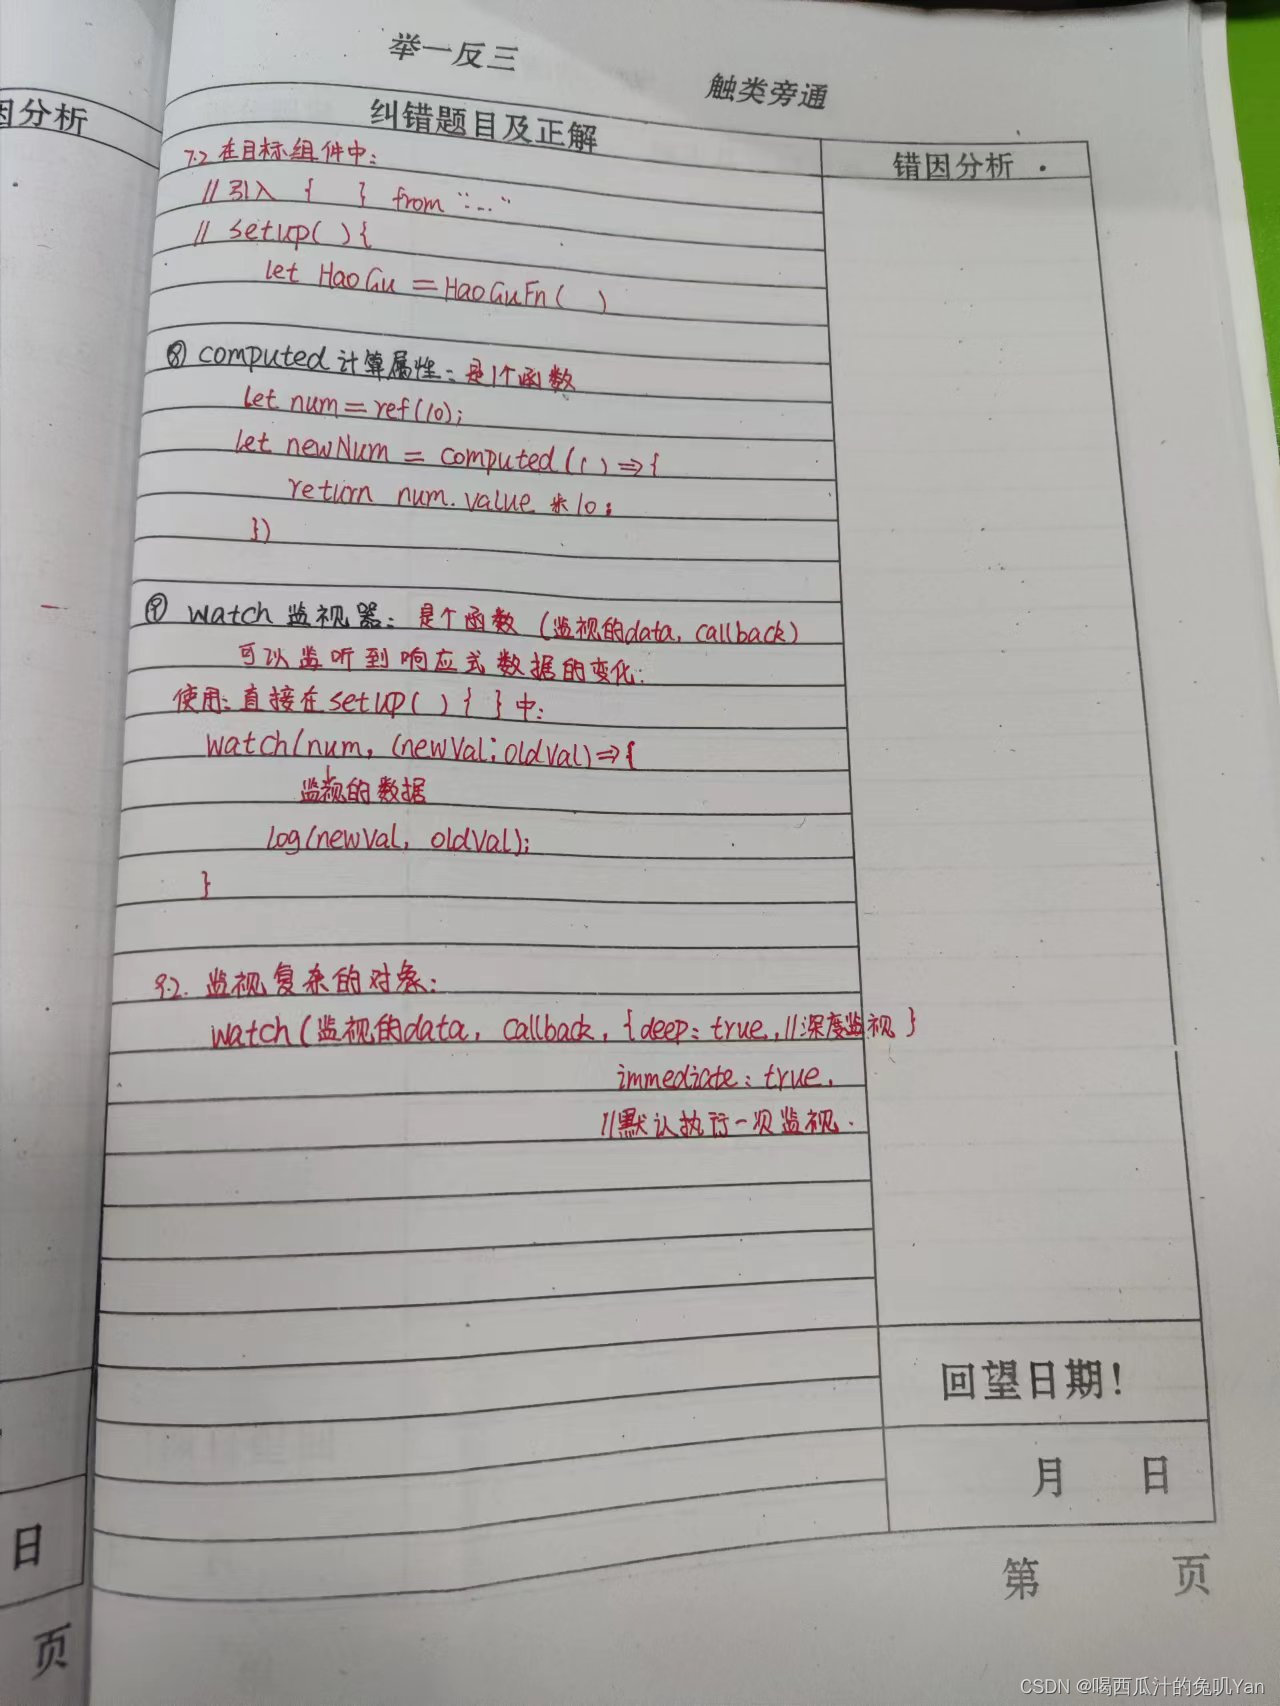 举一反三
触类旁通
因分析
纠错题目及正解
错因分析
7.2 在目标组件中:
// 引入 { } from "..."
// setup( ){
let HaoGu = HaoGuFn( )
⑧ computed 计算属性: 是1个函数
let num = ref(10);
let newNum = computed(( ) => {
return num.value * 10;
})
⑨ watch 监视器: 是个函数 (监视的data, callback)
可以监听到响应式数据的变化.
使用: 直接在 setup( ) { } 中:
watch(num, (newVal; oldVal) => {
监视的数据
log(newVal, oldVal);
}
9.2. 监视复杂的对象:
watch(监视的data, callback, {deep: true, //深度监视 }
immediate: true,
//默认执行一次监视.
回望日期!
月 日
日
第 页
页
CSDN @喝西瓜汁的兔叽Yan